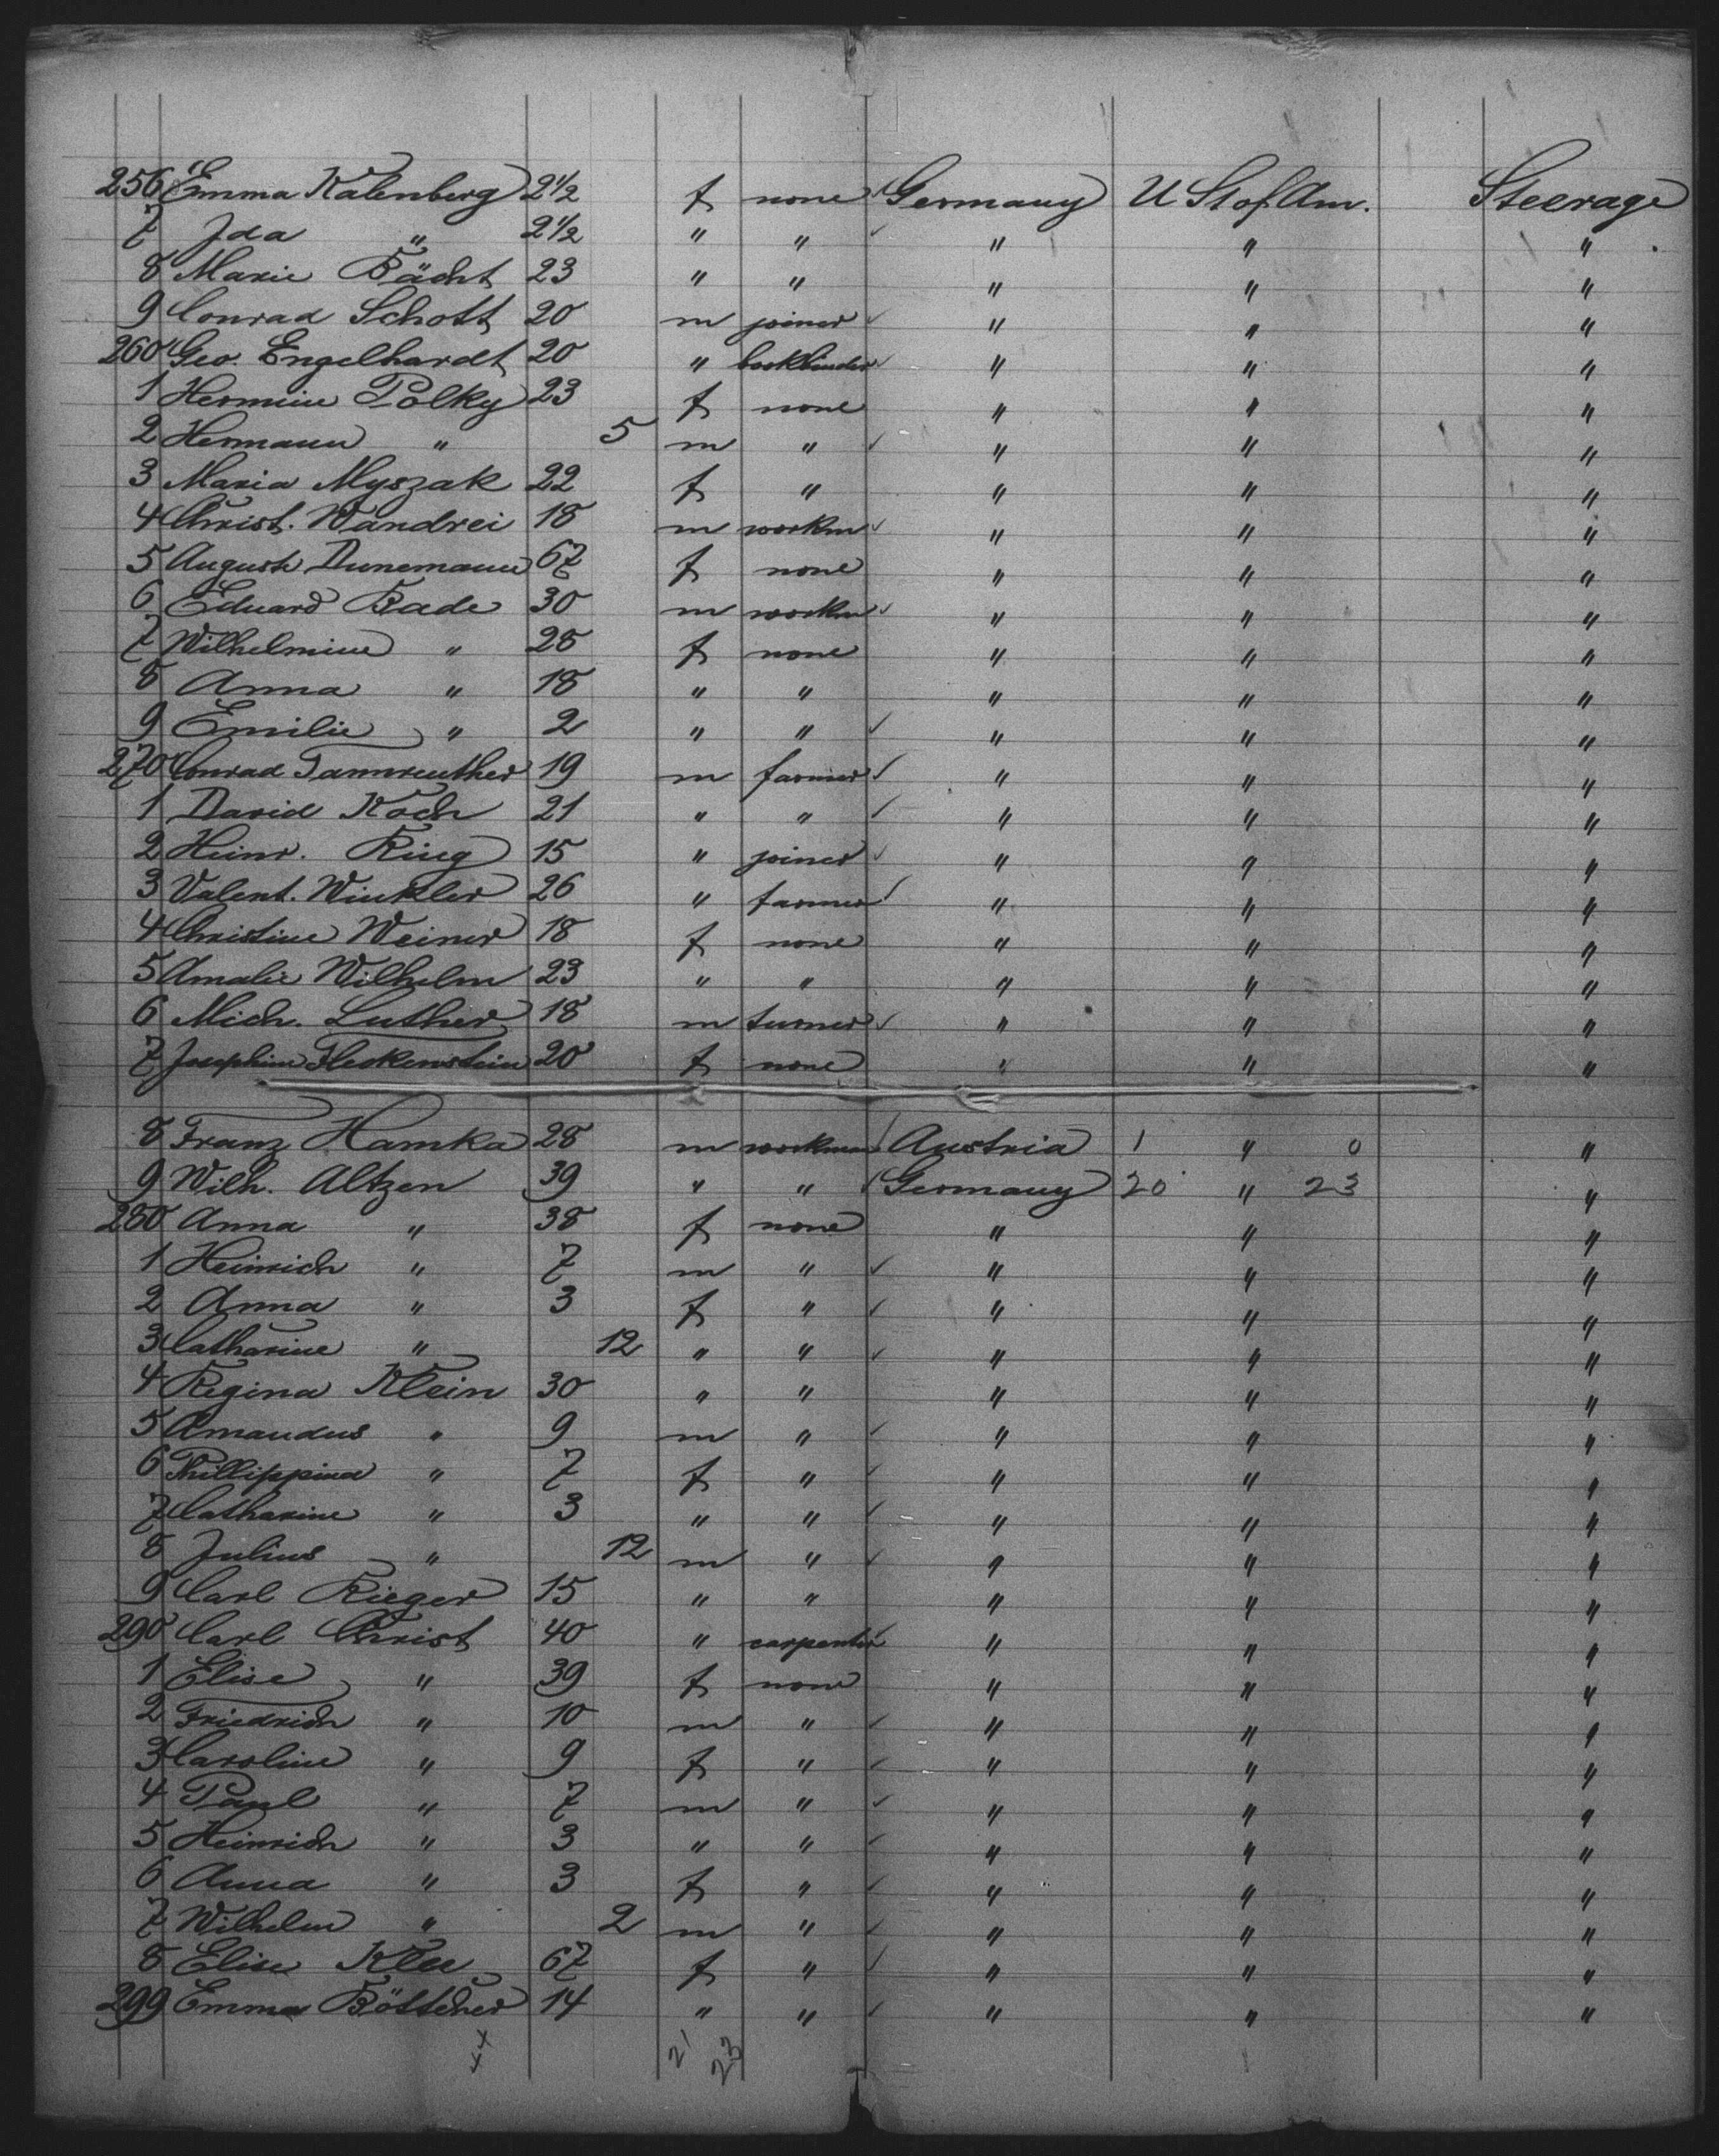 256 Emma Kalenberg 2 1/2 f none Germany U St of Am. Steerage
7 Ida " 2 1/2 " " " " "
8 Marie Bächt 23 " " " " "
9 Conrad Schott 20 m joiner " " "
260 Geo. Engelhardt 20 " bookbinder " " "
1 Hermine Polky 23 f none " " "
2 Hermann " 5 m " " " "
3 Maria Myszak 22 f " " " "
4 Christ. Wandrei 18 m workm " " "
5 Auguste Dunemann 67 f none " " "
6 Eduard Bade 30 m workm " " "
7 Wilhelmine " 28 f none " " "
8 Anna " 18 " " " " "
9 Emilie " 2 " " " " "
270 Conrad Tannreuther 19 m farmer " " "
1 David Koch 21 " " " " "
2 Heinr. Ring 15 " joiner " " "
3 Valent. Winkler 26 " farmer " " "
4 Christine Weiner 18 f none " " "
5 Amalie Wilhelm 23 " " " " "
6 Mich. Luther 18 m turner " " "
7 Josephine Fleckenstein 20 f none " " "
8 Franz Hamka 28 m workman Austria 1 " 0 "
9 Wilh. Altzen 39 " " Germany 20 " 23 "
280 Anna " 38 f none " " "
1 Heinrich " 7 m " " " "
2 Anna " 3 f " " " "
3 Catharine " 12 " " " " "
4 Regina Klein 30 " " " " "
5 Amandus " 9 m " " " "
6 Phillippina " 7 f " " " "
7 Catharine " 3 " " " " "
8 Julius " 12 m " " " "
9 Carl Rieger 15 " " " " "
290 Carl Christ 40 " carpenter " " "
1 Elise " 39 f none " " "
2 Friedrich " 10 m " " " "
3 Caroline " 9 f " " " "
4 Paul " 7 m " " " "
5 Heinrich " 3 " " " " "
6 Anna " 3 f " " " "
7 Wilhelm " 2 m " " " "
8 Elise Klee 67 f " " " "
299 Emma Böttcher 14 " " " " "
44 21 23